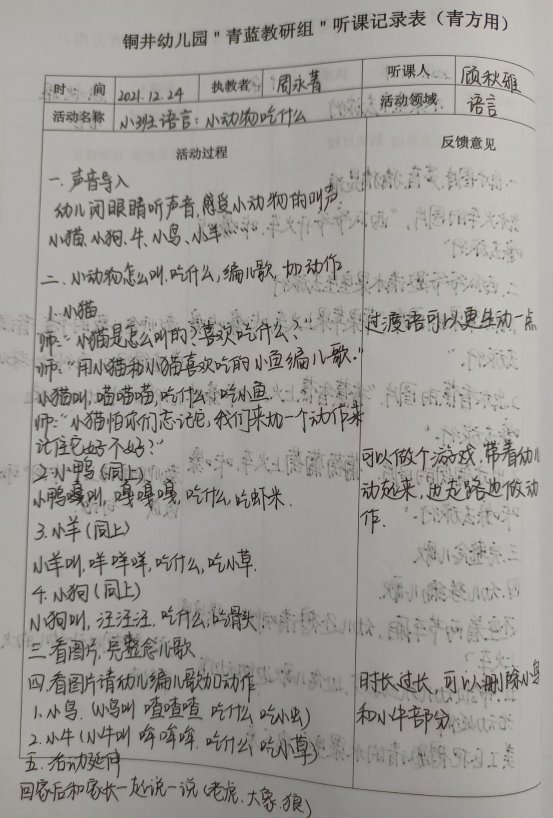 铜井幼儿园"青蓝教研组"听课记录表（青方用）
时 间 2021.12.24 执教者 周永菁 听课人 顾秋雅
活动名称 小班语言：小动物吃什么 活动领域 语言
活动过程 反馈意见
一.声音导入
幼儿闭眼睛听声音,感受小动物的叫声.
小猫.小狗.牛.小鸟.小羊
二.小动物怎么叫.吃什么,编儿歌,加动作.
1.小猫
师:"小猫是怎么叫的?喜欢吃什么?" 过渡语可以更生动一点
师:"用小猫和小猫喜欢吃的小鱼编儿歌."
小猫叫,喵喵喵,吃什么,吃小鱼.
师:"小猫怕你们忘记它,我们来加一个动作来
记住它好不好?"
2.小鸭(同上) 可以做个游戏,带着幼儿
小鸭嘎叫,嘎嘎嘎,吃什么,吃虾米. 动起来,边走路边做动
作.
3.小羊(同上)
小羊叫,咩咩咩,吃什么,吃小草.
4.小狗(同上)
小狗叫,汪汪汪,吃什么,吃骨头
三.看图片,完整念儿歌
四.看图片请幼儿编儿歌加动作 时长过长,可以删除小鸟
1.小鸟.(小鸟叫 喳喳喳 吃什么 吃小虫) 和小牛部分.
2.小牛(小牛叫 哞哞哞.吃什么 吃小草)
五.活动延伸
回家后和家长一起说一说(老虎.大象.狼)